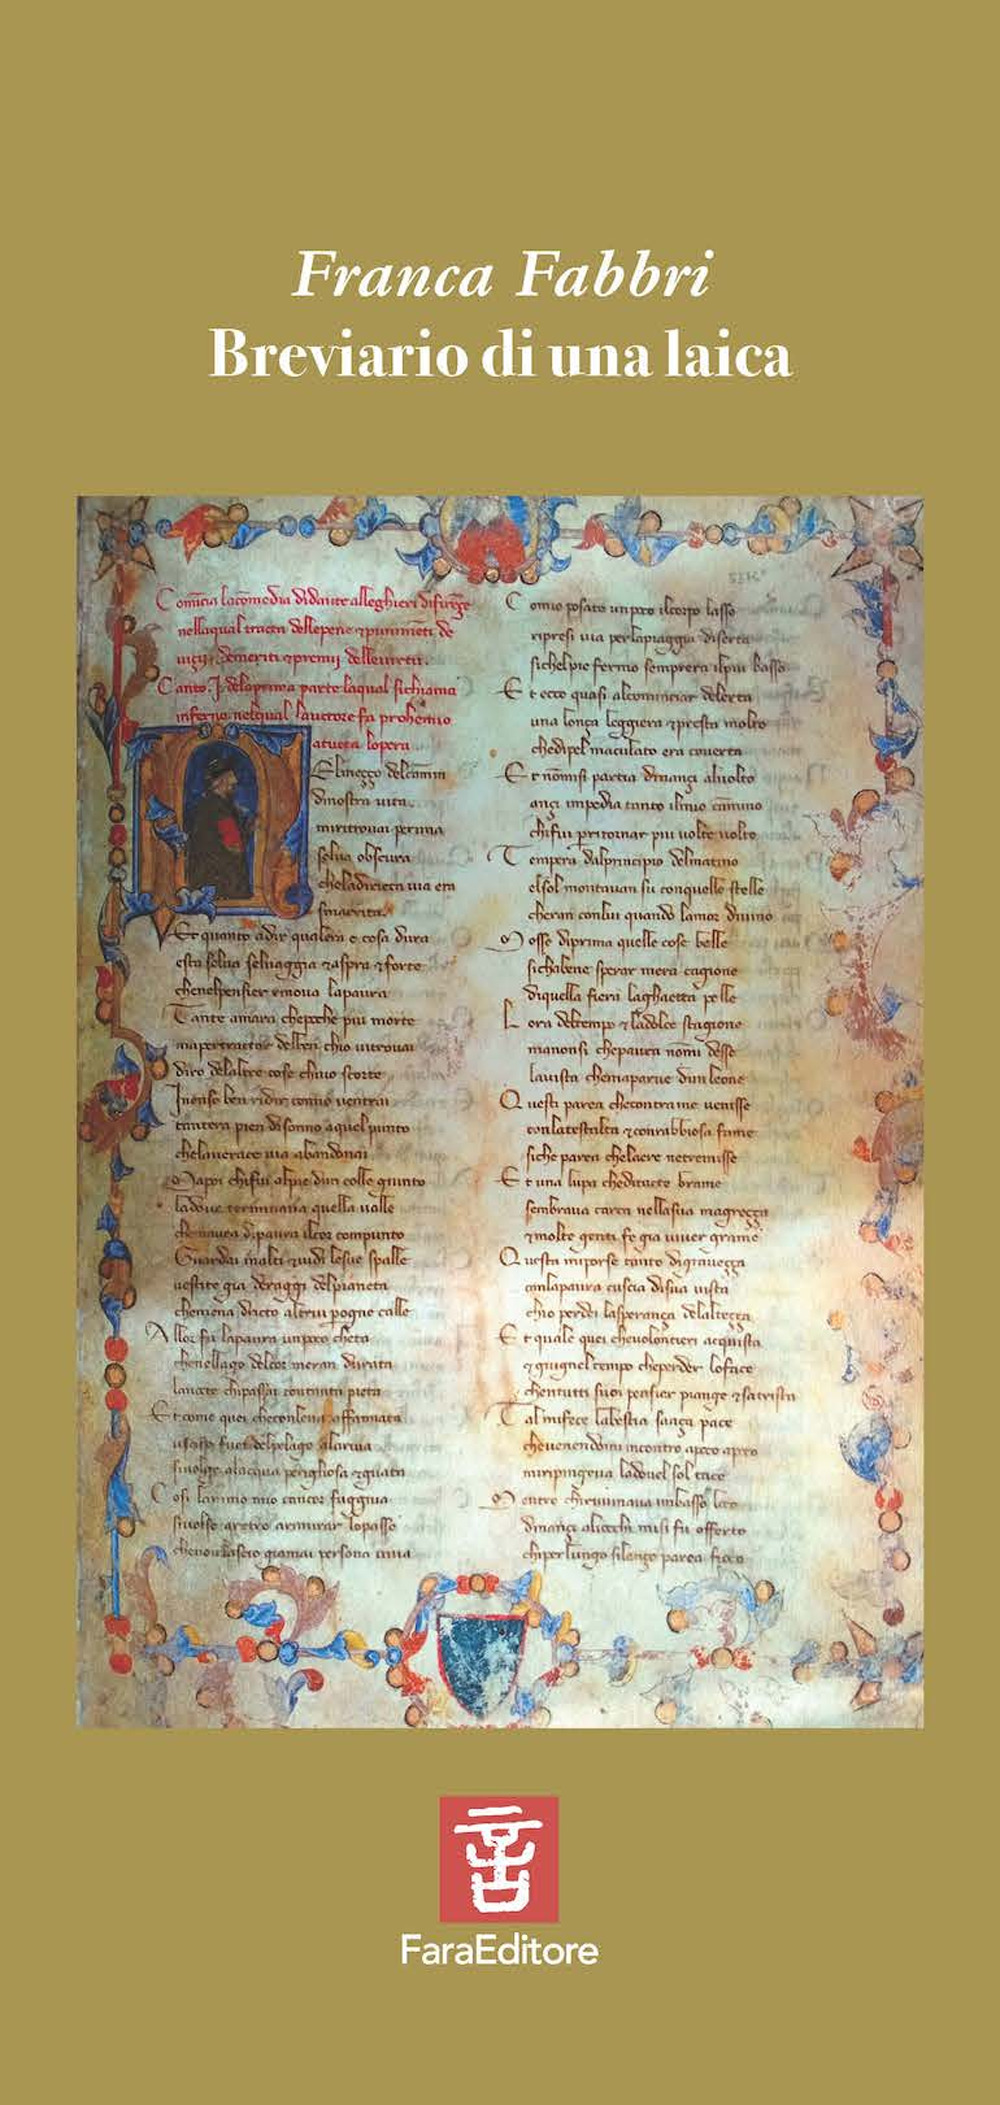 Franca Fabbri
Breviario di una laica
Comincia lacomedia didante alleghieri difirenze
nellaqual tracta dellepene et punimenti de
vicii et demeriti et premii dellevirtu.
Canto .I. delaprima parte laqual sichiama
inferno nelqual lauctore fa prohemio
atucta lopera
El mezzo delcamin
dinostra vita
mi ritrovai per una
selva obscura
cheladiricta via era
smarrita.
Et quanto adir qualera e cosa dura
esta selva selvaggia et aspra et forte
chenelpensier rinova lapaura
Tante amara chepoche piu morte
ma pertractar delben chio vitrovai
diro delaltre cose chivio scorte
Inonso ben ridir comio ventrai
tantera pien disonno aquel punto
chelaverace via abandonai
Mapoi chifui alpie dun colle giunto
ladove terminava quella valle
chemavea dipaura ilcor compunto
Guardai inalti et vidi lesue spalle
vestite gia deraggi delpianeta
chemena dricto altrui pogne calle
Allor fu lapaura unpoco cheta
chenellago delcor meran durata
lanocte chipassai contanta pieta
Et come quei checonlena affannata
uscito fuor delpelago alariva
sivolge alacqua perigliosa et guata
Cosi lanimo mio cancor fuggiva
sivolse aretro armirar lopasso
chenonlascio giamai persona viva
Como posato unpoco ilcorpo lasso
ripresi via perlapiaggia diserta
sichelpie fermo semprera ilpiu basso
Et ecco quasi alcominciar delerta
una lonça leggiera et presta molto
chedipel maculato era coverta
Et nomisi partia dinançi alvolto
ançi impedia tanto ilmio camino
chifui perritornar piu volte volto
Tempera dalprincipio delmatino
elsol montavan su conquelle stelle
cheran conlui quando lamor divino
Mosse diprima quelle cose belle
sichabene sperar mera cagione
diquella fiera laghaetta pelle
Lora deltempo et ladolce stagione
manonsi chepaura nomi desse
lavista chemaparve dunleone
Questi parea checontrame venisse
conlatestalta et conrabbiosa fame
siche parea chelaere netremisse
Et una lupa cheditucte brame
sembrava carca nellasua magreçça
et molte genti fe gia viver grame
Questa miporse tanto digraveçça
conlapaura cuscia disua vista
chio perdei lasperança delalteçça
Et quale quei chevolontieri acquista
et giugnel tempo cheperder loface
chentutti suoi pensier piange et satrista
Tal mifece labestia sança pace
chevenendomi incontro apoco apoco
miripingeva ladovel sol tace
Mentre chirovinava imbasso loco
dinançi aliocchi misi fu offerto
chiper lungo silenço parea fioco
FaraEditore